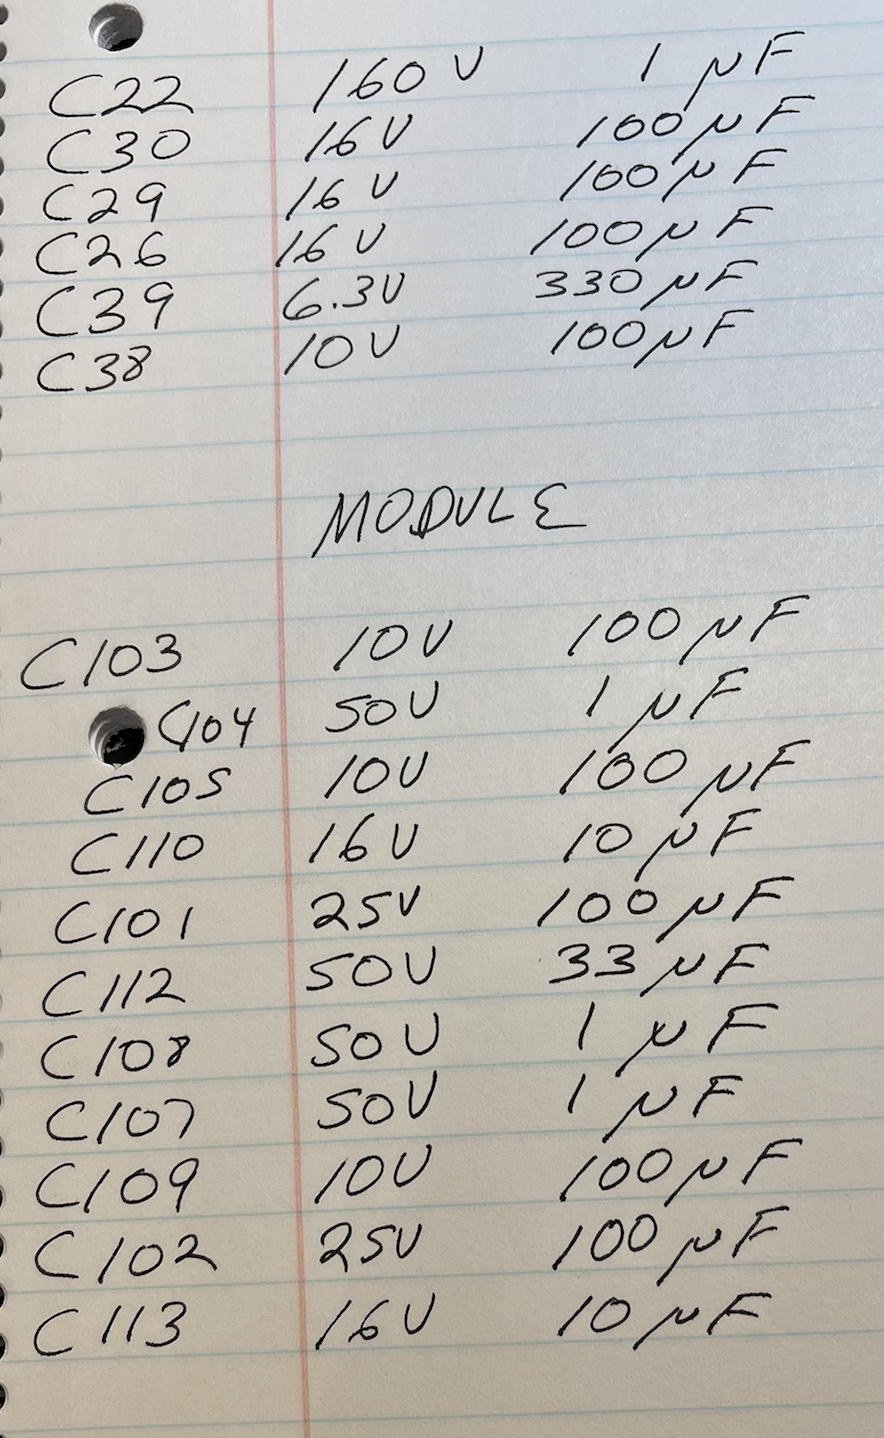 C22 160V 1 µF
C30 16V 100µF
C29 16V 100µF
C26 16V 100µF
C39 6.3V 330µF
C38 10V 100µF
MODULE
C103 10V 100µF
C104 50V 1 µF
C105 10V 100µF
C110 16V 10µF
C101 25V 100µF
C112 50V 33µF
C108 50V 1 µF
C107 50V 1 µF
C109 10V 100µF
C102 25V 100µF
C113 16V 10µF